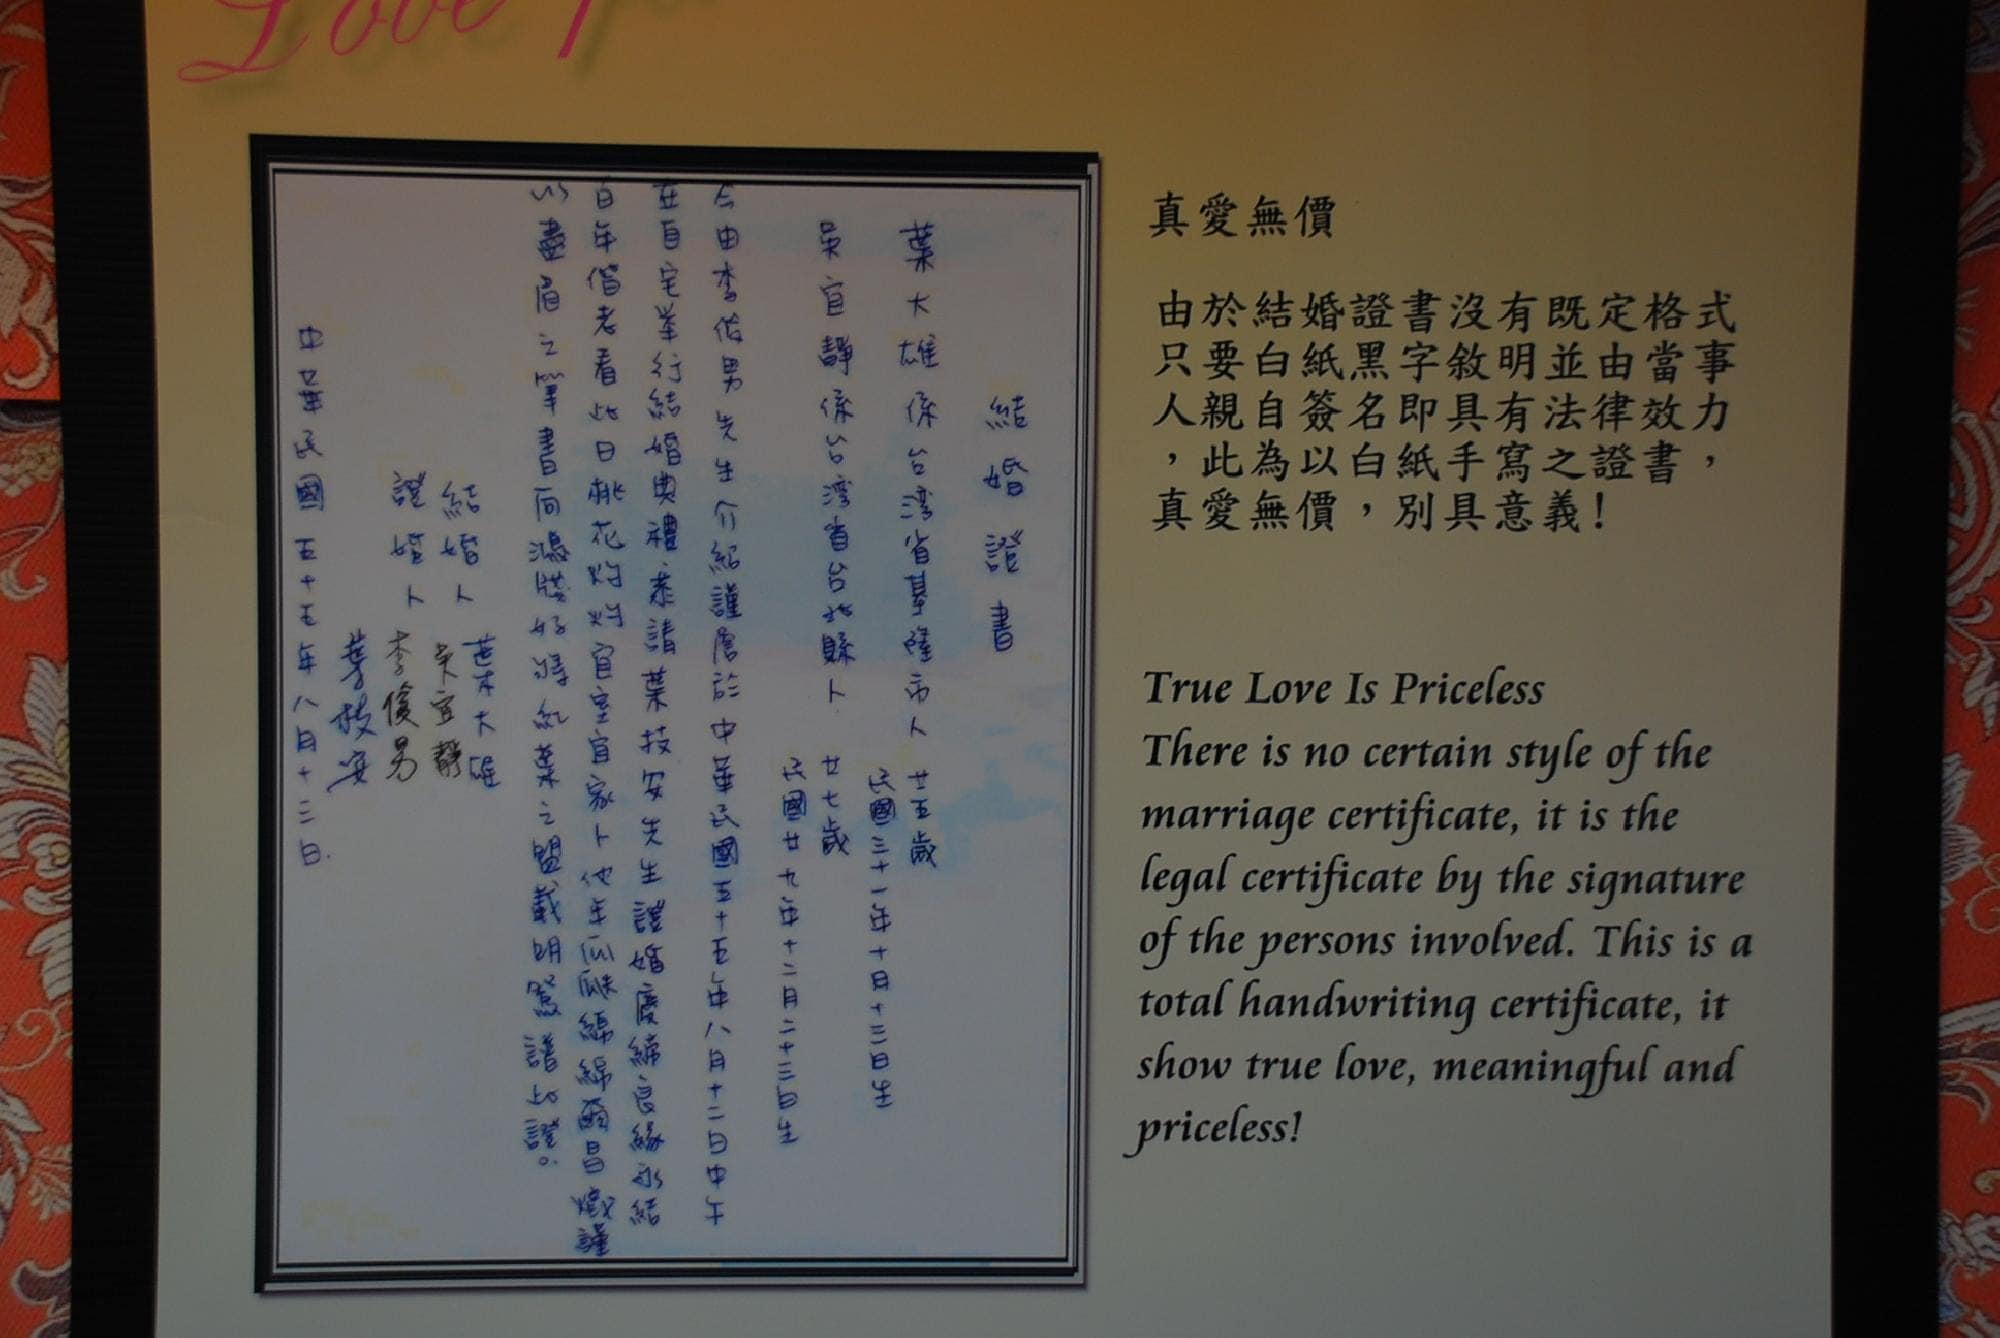 Love
結婚證書
葉大雄係台湾省基隆市人 廿五歲
民國三十一年十月十三日生
吴宜靜係台湾省台北縣人 廿七歲
民國廿九年十二月二十三日生
今由李俊男先生介紹謹詹於中華民國五十五年八月十二日中午
在自宅举行結婚典禮恭請葉技安先生證婚慶締良緣永結
白年偕老看此日桃花灼灼宜室宜家卜他年瓜瓞綿綿爾昌爾熾謹
以盡眉之筆書向鴻牋好將紅葉之盟載明鴛譜此證。
結婚人 葉大雄
吴宜靜
證婚人 李俊男
葉技安
中華民國五十五年八月十二日.
真愛無價
由於結婚證書沒有既定格式
只要白紙黑字敘明並由當事
人親自簽名即具有法律效力
，此為以白紙手寫之證書，
真愛無價，別具意義！
True Love Is Priceless
There is no certain style of the
marriage certificate, it is the
legal certificate by the signature
of the persons involved. This is a
total handwriting certificate, it
show true love, meaningful and
priceless!